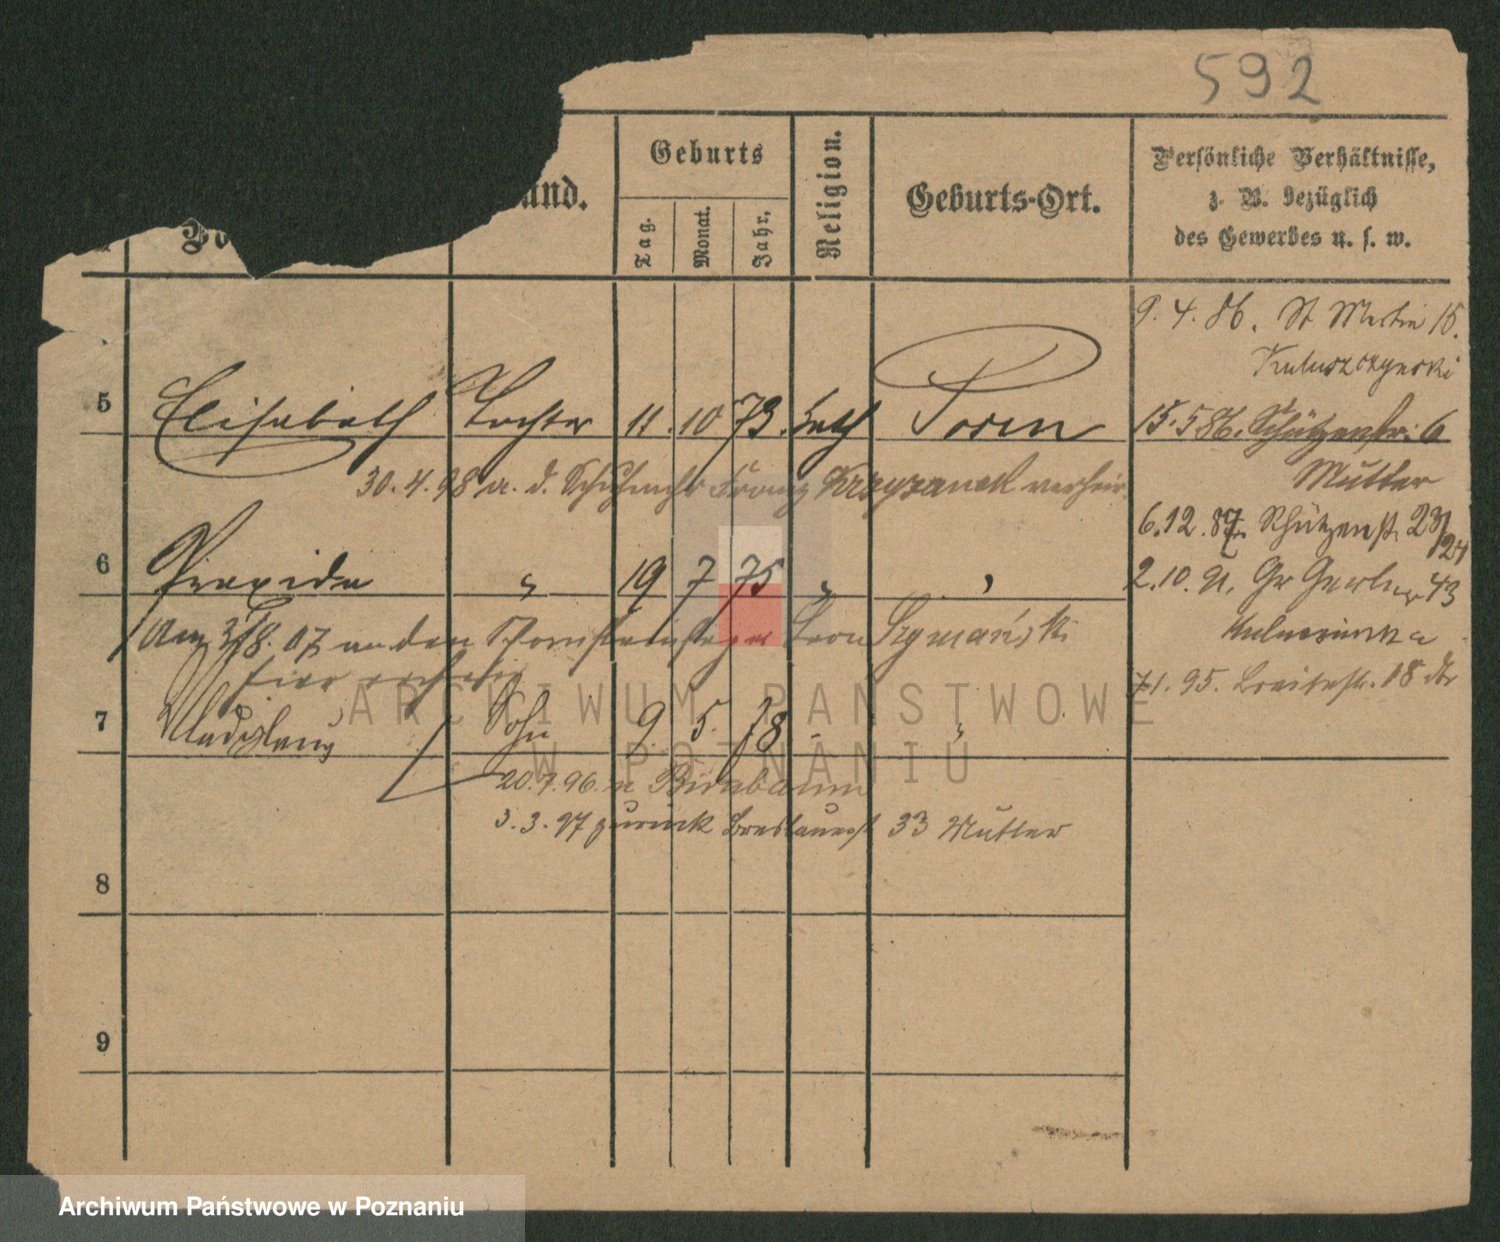 592
Geburts
Religion.
Geburts-Ort.
Persönliche Verhältnisse,
z. B. bezüglich
des Gewerbes u. s. w.
Tag.
Monat.
Jahr.
9. 4. 86. St Martin 15.
5 Elisabeth Tochter 11. 10 73. kath Posen
15. 5 86. Schützenstr. 6
Mutter
30. 4. 98 a. d. Schuhmchr Franz Krzyzanek verheir
6. 12. 87. Schützenst. 23/24
6 Praxida " 19 7 75 " "
2. 10. 91. Gr Gerber 43
Am 3/8. 07 an den Schornsteinfeger Leon Szymański
hier verh
7. 1. 95. Breitestr. 18
7 Wladyslaus Sohn 9. 5. 78 " "
20. 7. 96. n Birnbaum
3. 3. 97 zurück Breslauerst 33 Mutter
8
9
ARCHIWUM PAŃSTWOWE
W POZNANIU
Archiwum Państwowe w Poznaniu